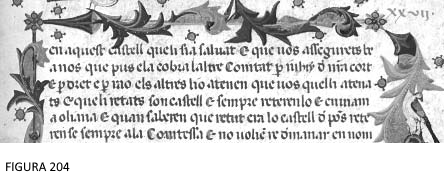 xx~ij.
en aquest castell queli sia saluat E que nos assegurets be
a nos que pus ela cobra laltre Comtat p̱ iuhij d̄ nr̄a cort
E p̱ dret e p̱ rao els altres ho atenen que uos queli atena-
ts E queli retats son castell E sempre reteren lo E enuiam
a oliana E quan saberen que retut era lo castell d̄ põs rete
ren se sempre a la Comtessa E no uolch̄e re d̄manar en nom
FIGURA 204